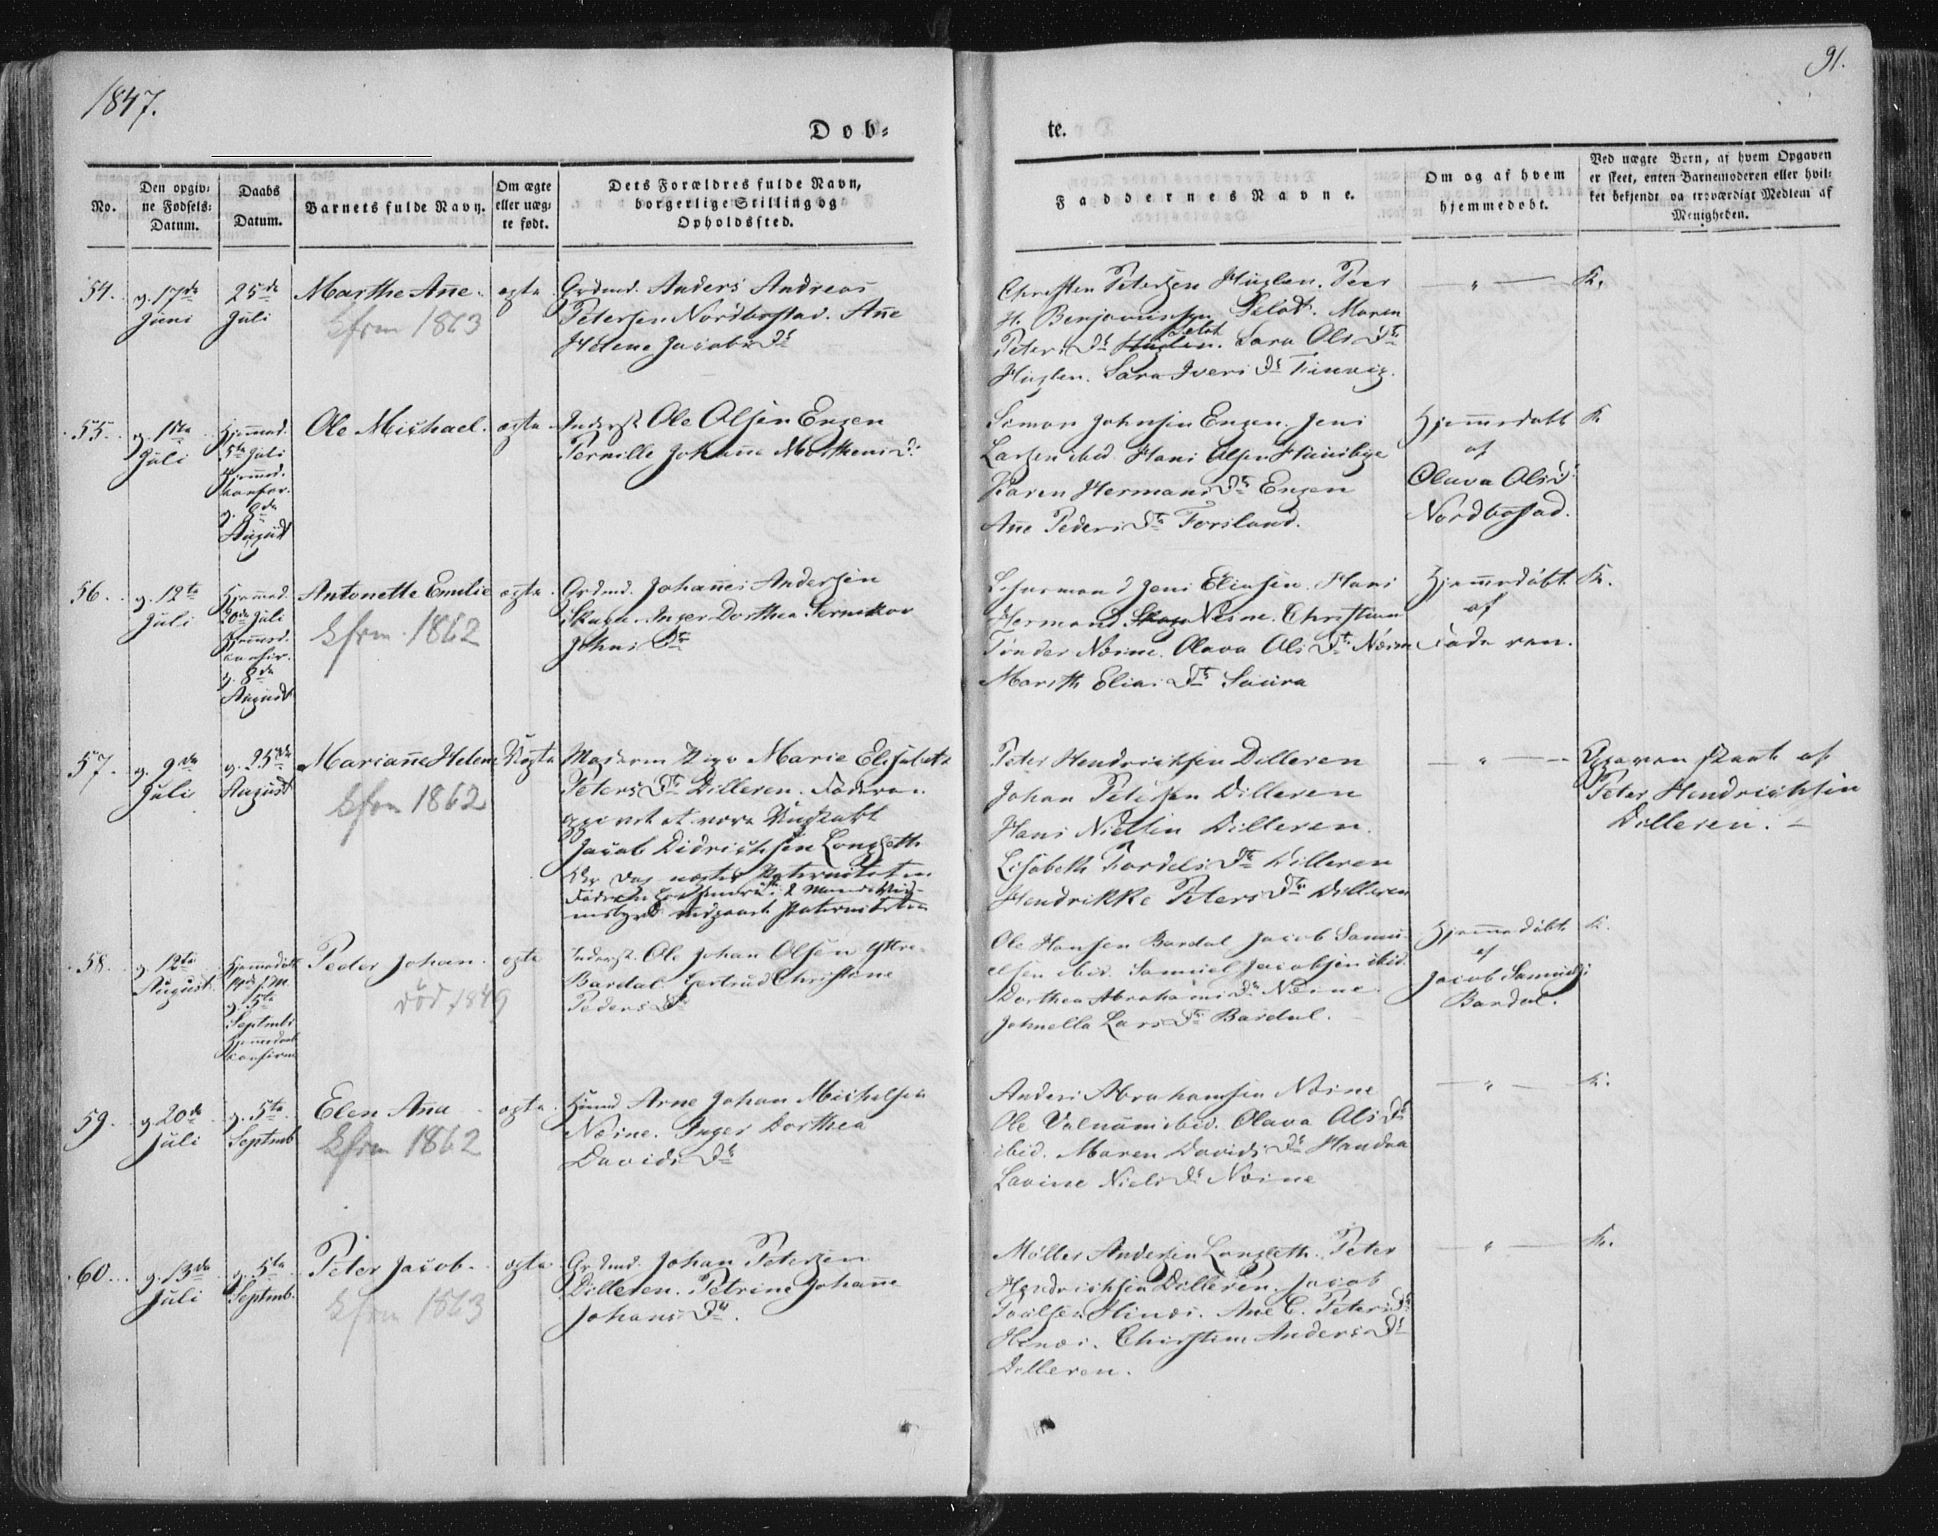 1847.
91.
Døb=
te.
No.
Den opgiv=
ne Fødsels=
Datum.
Daabs
Datum.
Barnets fulde Navn.
Om ægte
eller uæg=
te født.
Dets Forældres fulde Navn,
borgerlige Stilling og
Opholdssted.
Faddernes Navne.
Om og af hvem
hjemmedøbt.
Ved uægte Børn, af hvem Opgaven
er skeet, enten Barnemoderen eller hvil=
ket bekjendt og troværdigt Medlem af
Menigheden.
54.
17de
Juni
25de
Juli
Marthe Añe
1863
ægte
Grdmd. Anders Andreas
Petersen Nordbostad. Añe
Helene Jacobs Dr
Christen Petersen Huglen. Peer
H. Benjaminsen Selöt. Maren
Peters Dr Huglen. Selöt Sara Ols Dr
Huglen. Sara Ivers Dr Finvig.
— " —
K.
55.
1ste
Juli
Hjemmed.
5te Juli
Hjemmed.
confir.
8de
August
Ole Michael.
ægte
Inderst Ole Olsen Engen
Pernille Johañe Morthens Dr
Simon Johnsen Engen. Jens
Larsen ibid. Hans Olsen Huusbye
Karen Hermans Dr Engen
Añe Peders Dr Forsland.
Hjemmedøbt
af
Olava Ols Dr
Nordbostad.
K.
56.
12te
Juli
Hjemmed.
20de Juli
Hjemmed.
confir.
8de
August
Antonette Emilie
1862
ægte
Grdmd. Johañes Andersen
Skaga Inger Dorthea
Johns Dr
Lehnsmand Jens Eliasen. Hans
Hermand. Skaga Næsne. Christian
Tønder Næsne. Olava Ols Dr Næsne
Marith Elias Dr Saura
Hjemmedøbt
af
Faderen.
K.
57.
9de
Juli
25de
August
Mariañe Helene
1862
Uægte
Moderen Pige Marie Elisabeth
Peters Dr Dilleren. Faderen
opgivet at være Ungkarl
Jacob Didrichsen Longseth
Peter Hendrichsen Dilleren
Johan Petersen Dilleren
Hans Nielsen Dilleren.
Lisabeth Tordels Dr Dilleren
Hendrikke Peters Dr Dilleren
— " —
Opgaven skeet af
Peter Hendrichsen
Dilleren. —
58.
12te
August
Hjemmedøbt
5te
Septmb:
Peder Johan.
död 1849
ægte
Inderst. Ole Johan Olsen
Bardal Gertrud Christiane
Peders Dr
Ole Hansen Bardal Jacob Samu=
elsen ibid. Samuel Jacobsen ibid.
Dorthea Abrahams Dr Næsne.
Johnella Lars Dr Bardal.
Hjemmedøbt
af
Jacob Samuels:
Bardal.
K.
59.
20de
Juli
5te
Septmb
Elen Aña
1862
ægte
Huusmd Arne Johan Michelsen
Næsne. Inger Dorthea
Davids Dr
Anders Abrahamsen Næsne
Ole ibid. Olava Ols Dr
ibid. Maren Davids Dr Handnæ
Lavine Niels Dr Næsne
— " —
K.
60.
13de
Juli
5te
Septmb.
Peter Jacob.
1863
ægte
Grdmd. Johan Petersen
Dilleren. Petrine Johañe
Johans Dr.
Møller Andersen Longseth. Peter
Hendrichsen Dilleren. Jacob
Ane C. Peters Dr
Christine Anders Dr
Dilleren.
— " —
K.